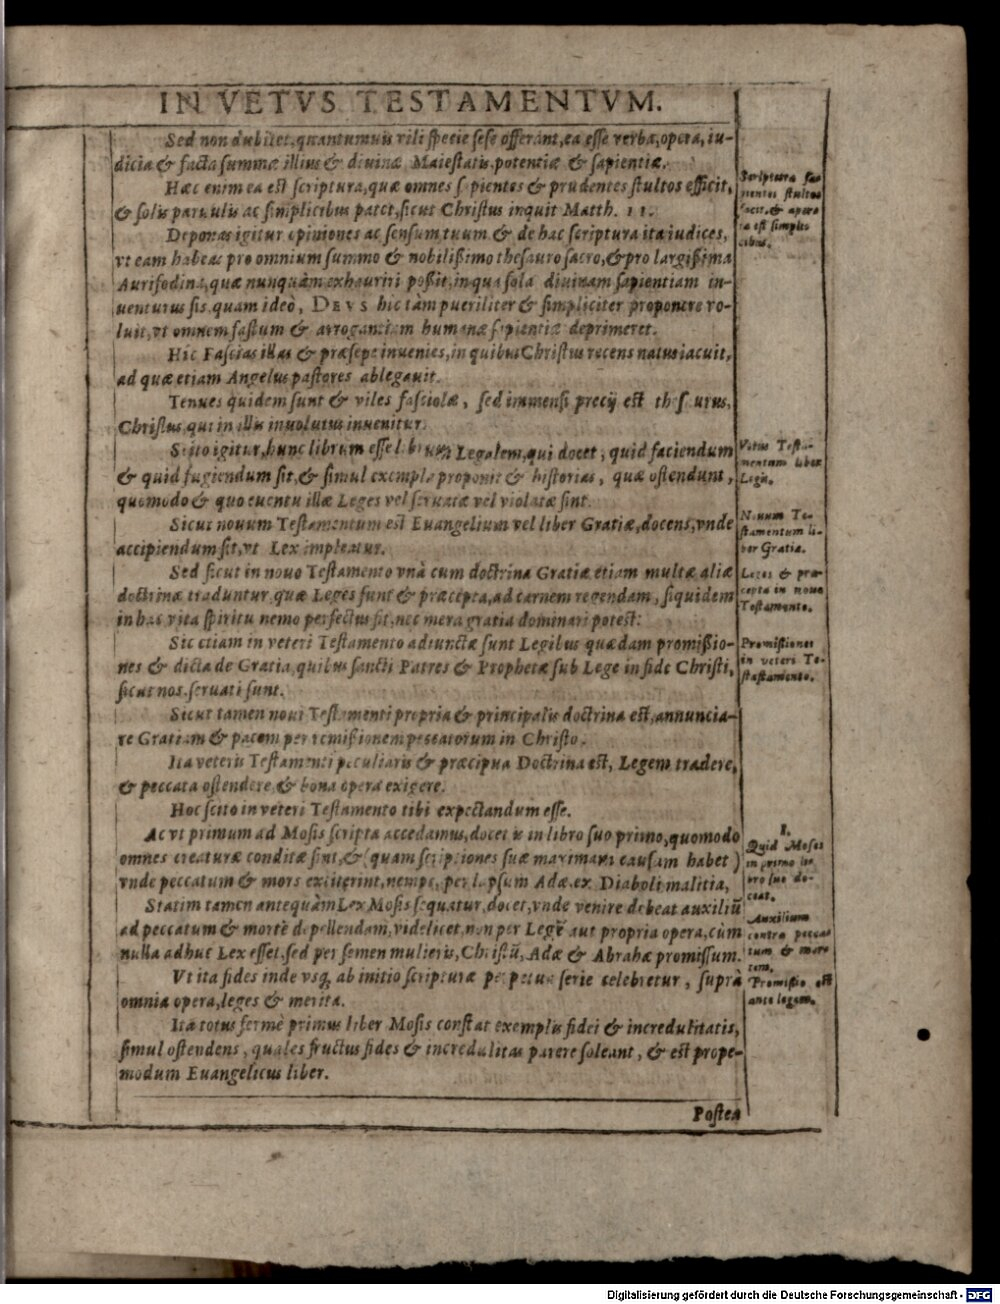 IN VETVS TESTAMENTVM.
Sed non dubitet, quantumuis vili specie sese offerant, ea esse verba, opera, iu-
dicia & facta summæ illius & diuinæ Maiestatis, potentiæ & sapientiæ.
Hæc enim ea est scriptura, quæ omnes sapientes & prudentes stultos efficit,
& solis paruulis ac simplicibus patet, sicut Christus inquit Matth. 11.
Deponas igitur opiniones ac sensum tuum & de hac scriptura ita iudices,
vt eam habeas pro omnium summo & nobilißimo thesauro sacro, & pro largißima
Aurifodina, quæ nunquàm exhauriri poßit, in qua sola diuinam sapientiam in-
uenturus sis, quam ideò, DEVS hic tàm pueriliter & simpliciter proponere vo-
luit, vt omnem fastum & arrogantiam humanæ sapientiæ deprimeret.
Hic Fascias illas & præsepe inuenies, in quibus Christus recens natus iacuit,
ad quæ etiam Angelus pastores ablegauit.
Tenues quidem sunt & viles fasciolæ, sed immensi precij est thesaurus,
Christus, qui in illis inuolutus inuenitur.
Scito igitur, hunc librum esse librum Legalem, qui docet, quid faciendum
& quid fugiendum sit, & simul exempla proponit & historias, quæ ostendunt,
quomodo & quo euentu illæ Leges vel seruatæ vel violatæ sint.
Sicut nouum Testamentum est Euangelium vel liber Gratiæ, docens, vnde
accipiendum sit, vt Lex impleatur.
Sed sicut in nouo Testamento vnà cum doctrina Gratiæ etiam multæ aliæ
doctrinæ traduntur, quæ Leges sunt & præcepta, ad carnem regendam, siquidem
in hac vita spiritu nemo perfectus sit, nec mera gratia dominari potest:
Sic etiam in veteri Testamento adiunctæ sunt Legibus quædam promißio-
nes & dicta de Gratia, quibus sancti Patres & Prophetæ sub Lege in fide Christi,
sicut nos, seruati sunt.
Sicut tamen noui Testamenti propria & principalis doctrina est, annuncia-
re Gratiam & pacem per remißionem peccatorum in Christo.
Ita veteris Testamenti peculiaris & præcipua Doctrina est, Legem tradere,
& peccata ostendere, & bona opera exigere.
Hoc scito in veteri Testamento tibi expectandum esse.
Ac vt primum ad Mosis scripta accedamus, docet is in libro suo primo, quomodo
omnes creaturæ conditæ sint, & (quam scriptiones suæ maximam causam habet)
vnde peccatum & mors extiterint, nempe, per lapsum Adæ, ex Diaboli malitia,
Statim tamen antequàm Lex Mosis sequatur, docet, vnde venire debeat auxiliũ
ad peccatum & mortẽ depellendam, videlicet, non per Legẽ aut propria opera, cùm
nulla adhuc Lex esset, sed per semen mulieris, Christũ, Adæ & Abrahæ promissum.
Vt ita fides inde vsq; ab initio scripturæ perpetua serie celebretur, suprà
omnia opera, leges & merita.
Ita totus fermè primus liber Mosis constat exemplis fidei & incredulitatis,
simul ostendens, quales fructus fides & incredulitas parere soleant, & est prope-
modum Euangelicus liber.
Postea
Scriptura sa-
pientes stultos
facit, & aper-
ta est simpli-
cibus.
Vetus Testa-
mentum liber
Legis.
Nouum Te-
stamentum li-
ber Gratiæ.
Leges & præ-
cepta in nouo
Testamento.
Promißiones
in veteri Te-
stastamento.
I.
Quid Moses
in primo li-
bro suo do-
ceat.
Auxilium
contra pecca-
tum & mor-
tem.
Promißio est
ante legem.
Digitalisierung gefördert durch die Deutsche Forschungsgemeinschaft - DFG